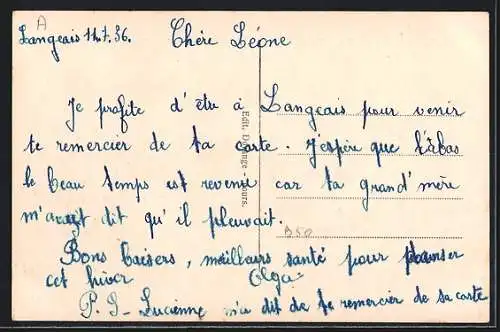 A
Langeais 11.7.36. Chère Léone
Je profite d'être à Langeais pour venir
te remercier de ta carte. J'espère que l'àbas
le beau temps est revenu car ta grand'mère
m'avait dit qu'il pleuvait.
Bons baisers, meilleurs santé pour
cet hiver Olga
P.S- Lucienne m'a dit de te remercier de sa carte
Edit. - Tours.
B50